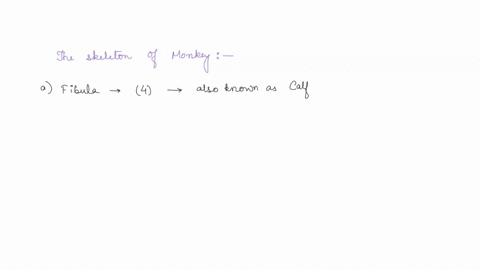 The skeleton of Monkey :-
a) Fibula → (4) → also known as Calf